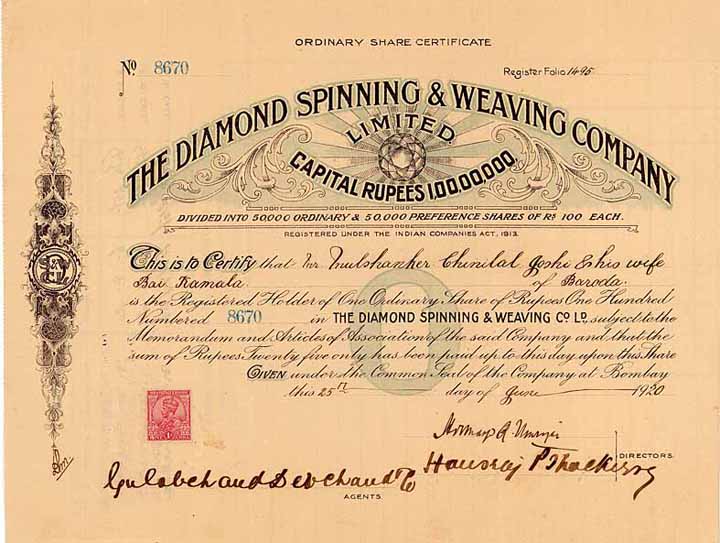 ORDINARY SHARE CERTIFICATE
No 8670
Register Folio 1495
THE DIAMOND SPINNING & WEAVING COMPANY
LIMITED.
CAPITAL RUPEES 1,00,00,000.
DIVIDED INTO 50,000 ORDINARY & 50,000 PREFERENCE SHARES OF Rs 100 EACH.
REGISTERED UNDER THE INDIAN COMPANIES ACT, 1913.
This is to Certify that Mr. Mulshanker Chunilal Joshi & his wife
Bai Kamala of Baroda.
is the Registered Holder of One Ordinary Share of Rupees One Hundred
Numbered 8670 in THE DIAMOND SPINNING & WEAVING Co Ld., subject to the
Memorandum and Articles of Association of the said Company and that the
sum of Rupees Twenty five only has been paid up to this day upon this Share
GIVEN under the Common Seal of the Company at Bombay
this 25th day of June 1920
DIRECTORS.
Gulabchand Devchand & Co
Hansraj P Thackersey
AGENTS.